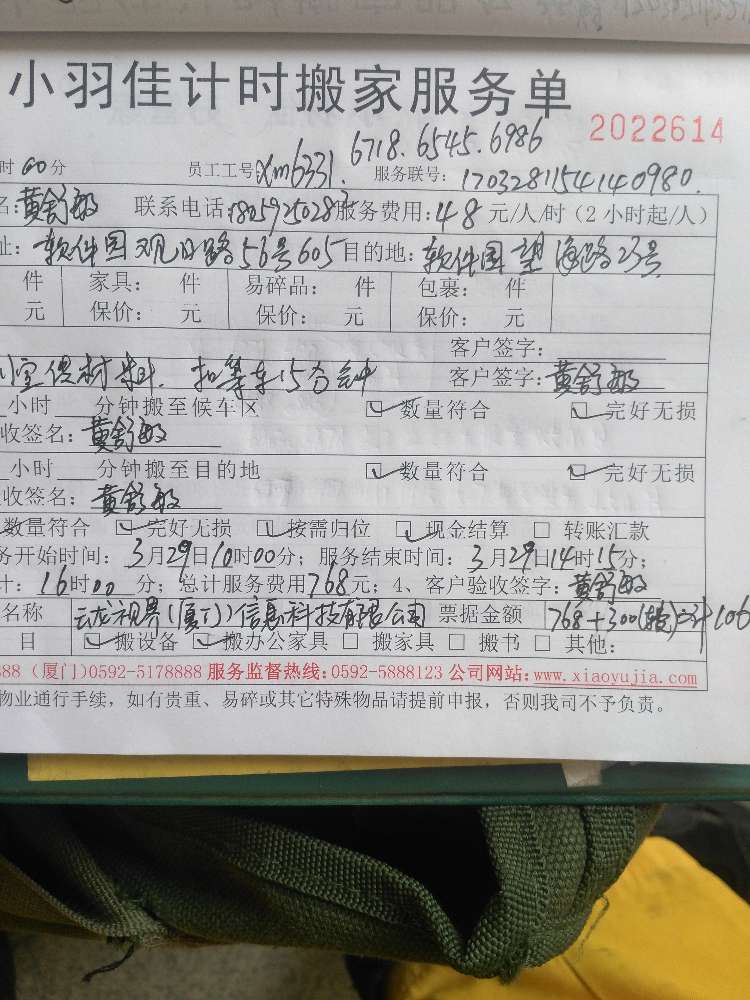 小羽佳计时搬家服务单
2022614
6718.6545.6986
时00分 员工工号xm6331. 服务联号:1703281154140980.
名:黄舒敏 联系电话:18059250283服务费用:48元/人/时(2小时起/人)
址:软件园观日路56号605目的地:软件园望海路23号
件 家具: 件 易碎品: 件 包裹: 件
元 保价: 元 保价: 元 保价: 元
客户签字:
供材料. 扣等车15分钟 客户签字:黄舒敏
小时 分钟搬至候车区 数量符合 完好无损
收签名:黄舒敏
小时 分钟搬至目的地 数量符合 完好无损
收签名:黄舒敏
数量符合 完好无损 按需归位 现金结算 转账汇款
务开始时间:3月29日10时00分;服务结束时间:3月29日14时15分;
计:16时00分;总计服务费用768元;4、客户验收签字:黄舒敏
名称 云龙视界(厦门)信息科技有限公司 票据金额 768+300
目 搬设备 搬办公家具 搬家具 搬书 其他:
888(厦门)0592-5178888 服务监督热线:0592-5888123 公司网站:www.xiaoyujia.com
物业通行手续,如有贵重、易碎或其它特殊物品请提前申报,否则我司不予负责。